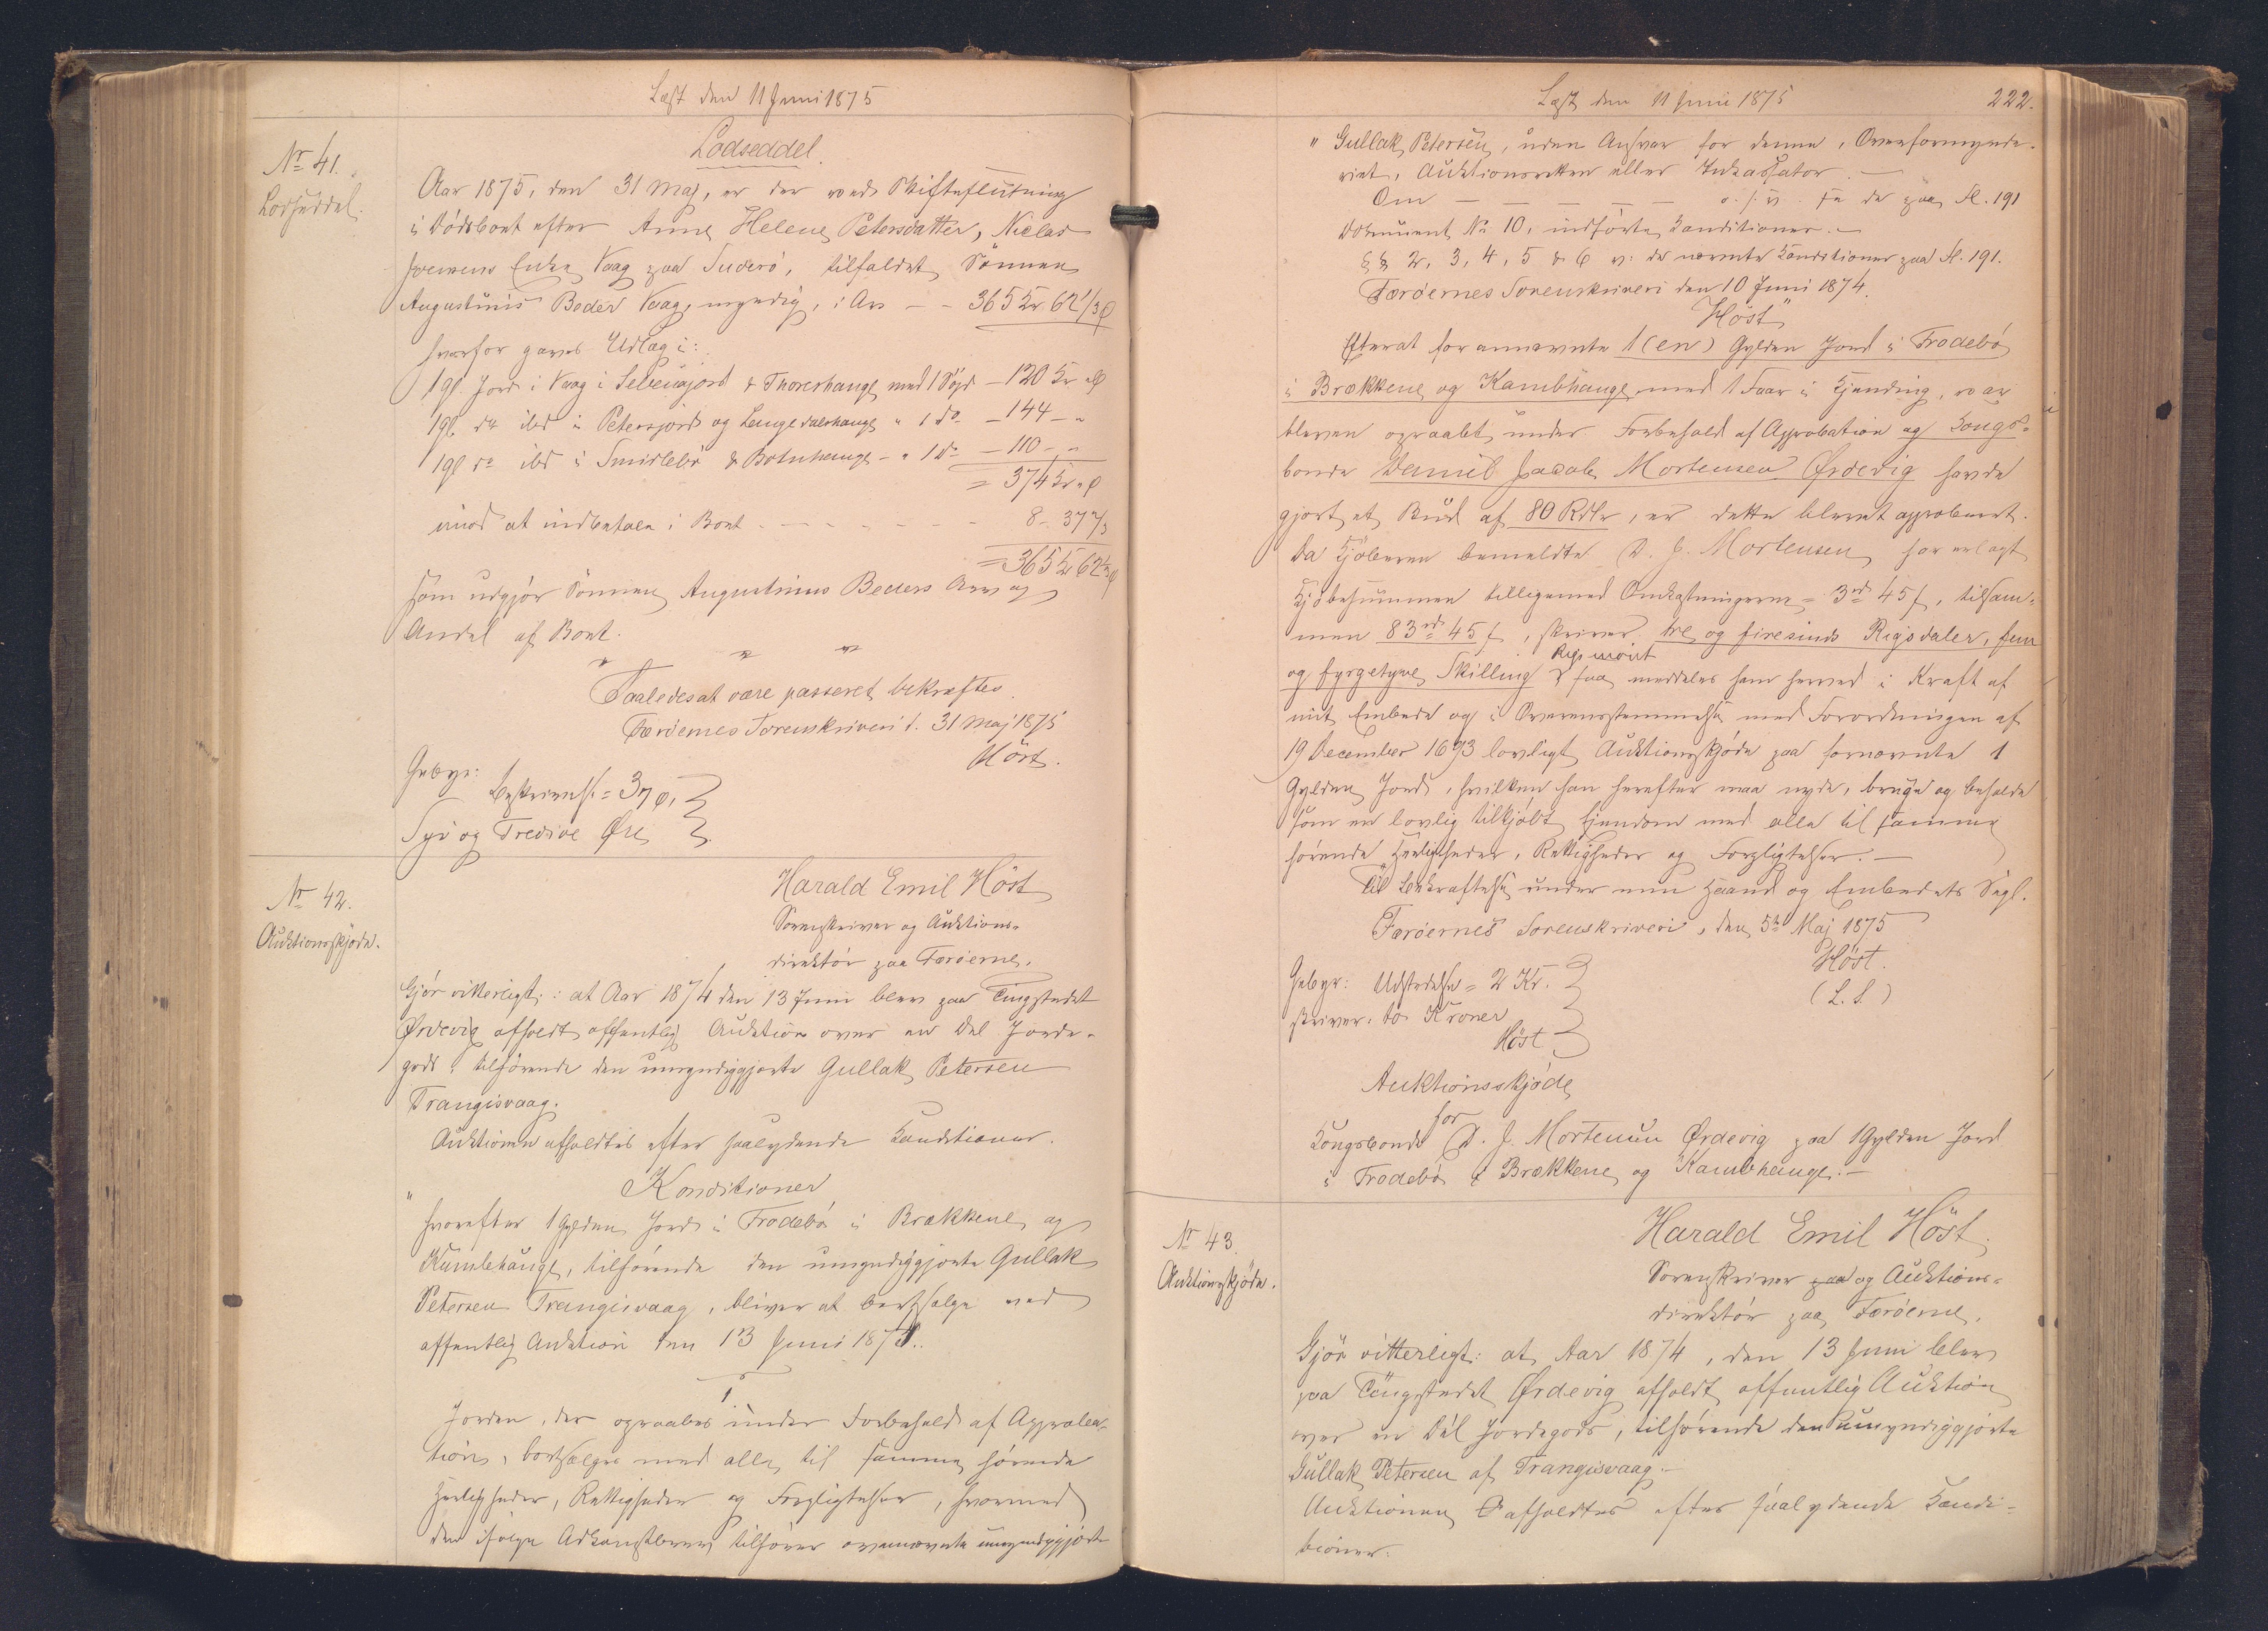 Læst den 11 Juni 1875
Nr 41.
Lodseddel.
Lodseddel.
Aar 1875, den 31 Maj, er der ved Skifteslutning
i Dödsboet efter Anne Helene Petersdatter, Niclas
Joensens Enke Vaag paa Suderö, tilfaldet Sönnen
Augustinus Beder Vaag, myndig, i Arv - - 365 Kr 62 1/3 Ø
hvorfor gaves Udlæg i:
1 gl. Jord i Vaag i & Thoreshauge med 1 - 120 Kr. " Ø
1 gl. do ibd i Petersjord og Lengedalshauge " 1 do - 144 - "
1 gl do ibd i Smidlebö & Botnhauge - " 1 do - 110 - "
= 374 Kr " Ø
imod at indbetale i Boet - - - - - - - 8 - 37 2/3
= 365 Kr 62 1/3 Ø
som udgjör Sönnen Augustinus Beders Arv og
Andel af Boet.
" " "
Saaledes at være passeret bekræftes.
Færöernes Sorenskriveri d. 31 Maj 1875
Höst.
Gebyr:
Beskrivelse = 37 Ø,
Syv og Tredive Øre
Nr 42.
Auktionsskjöde.
Harald Emil Höst
Sorenskriver og Auktions-
direktör paa Færöerne.
Gjör vitterligt: at Aar 1874 den 13 Juni blev paa Tingstedet
Ördevig afholdt offentlig Auktion over en Del Jorde-
gods tilhörende den umyndiggjorte Gullak Petersen
Trangisvaag.
Auktionen afholdtes efter saalydende Konditioner.
Konditioner
" hvorefter 1 Gylden Jord i Frodebö i Brækkene og
Kambhauge, tilhörende den umyndiggjorte Gullak
Petersen Trangisvaag, bliver at bortsælge ved
offentlig Auktion den 13 Juni 1874.
1
Jorden, der opraabes under Forbehold af Approba-
tion, bortsælges med alle til samme hörende
Herligheder, Rettigheder og Forpligtelser, hvormed
den ifölge Adkomstbrev tilhörer ovennævnte umyndiggjorte
Læst den 11 Juni 1875
222.
" Gullak Petersen, uden Ansvar for denne, Overformynde-
riet, Auktionsretten eller Inkassator. -
Om - - - - - o. s. v. se de paa fol. 191
Dokument No 10, indförte Konditioner. -
§§ 2, 3, 4, 5 & 6 v: de nævnte Konditioner paa fol. 191.
Færöernes Sorenskriveri den 10 Juni 1874.
Höst "
Efterat forannævnte 1 (en) Gylden Jord i Frodebö
i Brækkene og Kambhauge med 1 Faar i Hjending, var
bleven opraabt under Forbehold af Approbation og Kongs-
bonde Daniel Jacob Mortensen Ørdevig havde
gjort et Bud af 80 Rdlr, er dette blevet approberet.
Da Kjöberen bemeldte D. J. Mortensen har erlagt
Kjöbesummen tilligemed Omkostningerne = 3 rd 45 s, tilsam-
men 83 rd 45 s, skriver tre og firesinds Rigsdaler, fem
og fyrgetyve Skilling Rigsmönt saa meddeles ham herved i Kraft af
mit Embede og i Overensstemmelse med Forordningen af
19 December 1693 lovligt Auktionsskjöde paa fornævnte 1
Gylden Jord, hvilken han herefter maa nyde, bruge og beholde
som en lovlig tilkjöbt Ejendom med alle til samme
hörende Herligheder, Rettigheder og Forpligtelser. -
Til Bekræftelse under min Haand og Embedets Segl.
Færöernes Sorenskriveri, den 5te Maj 1875
Höst.
(L. S.)
Gebyr: Udstedelse = 2 Kr.
skriver: to Kroner
Höst
Auktionsskjöde
for
Kongsbonde D. J. Mortensen Ørdevig paa 1 Gylden Jord
i Frodebö i Brækkene og Kambhauge. -
Nr 43.
Auktionsskjöde.
Harald Emil Höst,
Sorenskriver paa og Auktions-
direktör paa Færöerne,
Gjör vitterligt: at Aar 1874, den 13 Juni blev
paa Tingstedet Ørdevig afholdt offentlig Auktion
over en Del Jordegods, tilhörende den umyndiggjorte
Gullak Petersen af Trangisvaag. -
Auktionen afholdtes efter saalydende Kondi-
tioner: